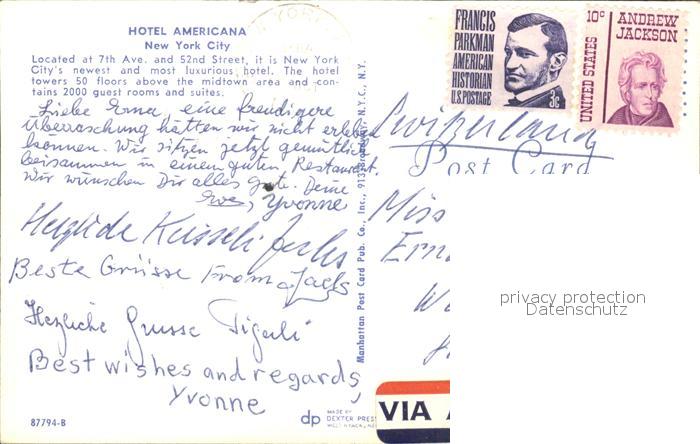 HOTEL AMERICANA
New York City
Located at 7th Ave. and 52nd Street, it is New York
City's newest and most luxurious hotel. The hotel
towers 50 floors above the midtown area and con-
tains 2000 guest rooms and suites.
Liebe Erna, eine freudigere
Überraschung hätten wir nicht erleben
können. Wir sitzen jetzt gemütlich
beisammen in einem guten Restaurant.
Wir wünschen Dir alles Gute. Deine
Yvonne
Herzliche
Beste Grüsse From Jack
Herzliche Grüsse
Best wishes and regards,
Yvonne
87794-B
Manhattan Post Card Pub. Co., Inc., 913 Broadway, N.Y.C., N.Y.
dp MADE BY
DEXTER PRESS
FRANCIS
PARKMAN
AMERICAN
HISTORIAN
U.S. POSTAGE 3c
10c ANDREW
JACKSON
UNITED STATES
Switzerland
Post Card
Miss
Ern
privacy protection
Datenschutz
VIA A